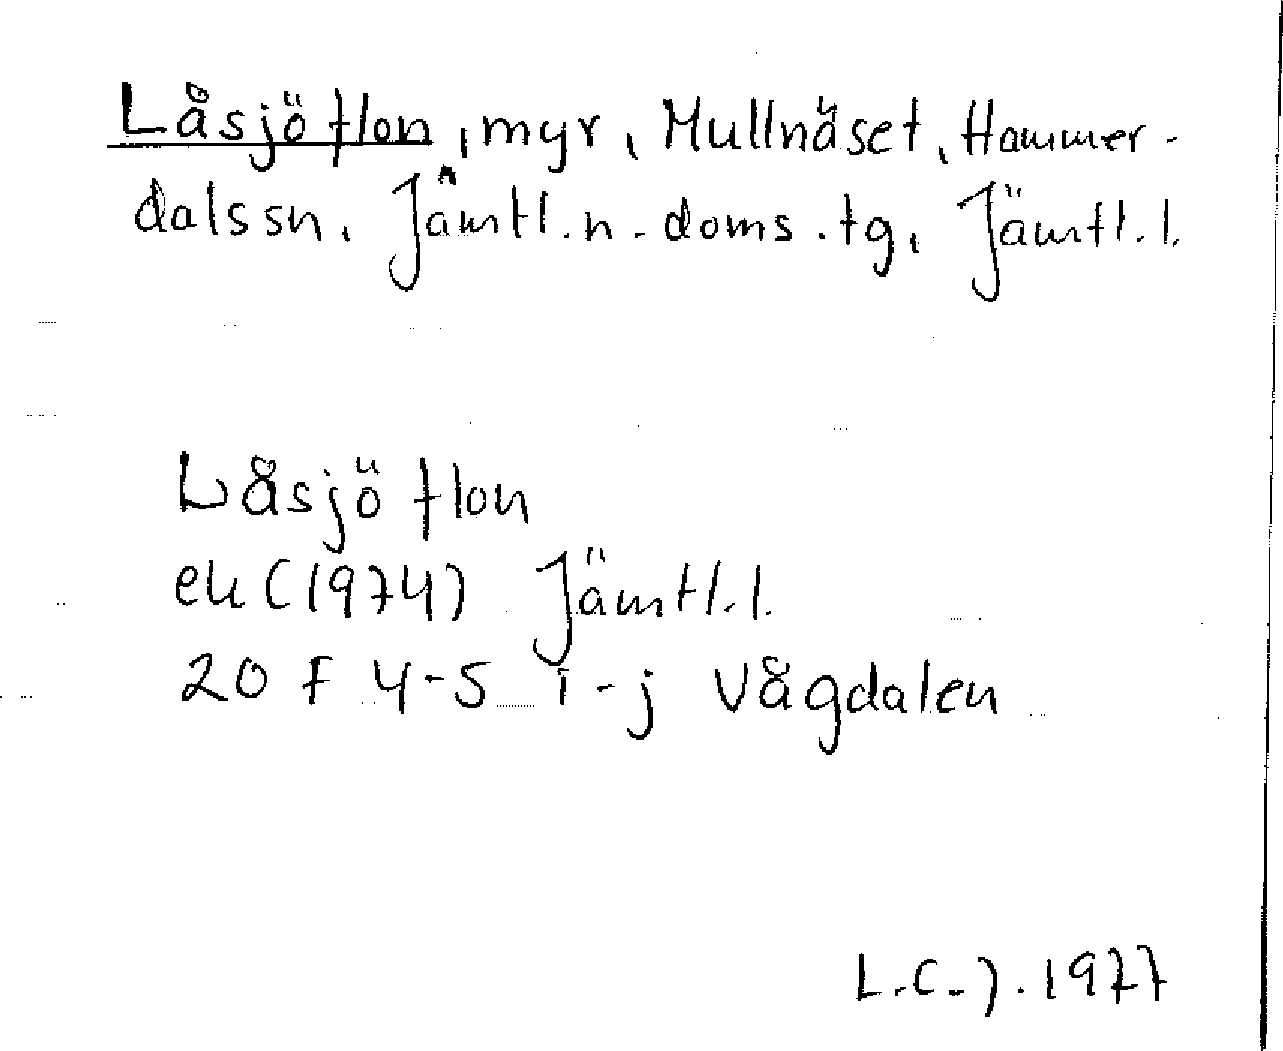 Låsjöflon, myr, Mullnäset, Hammer-
dals sn, Jämtl. n. doms. tg, Jämtl. l.
Låsjöflon
ek (1974) Jämtl. l.
20 F 4-5 i-j Vågdalen
L.C.J. 1977